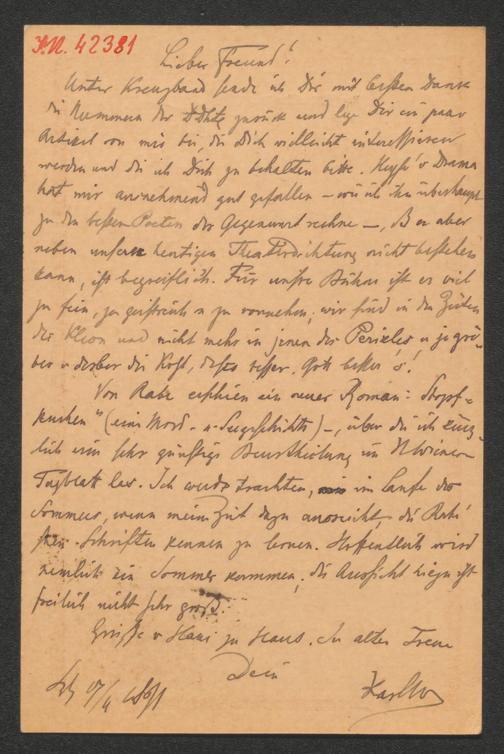 I.N. 42381
Lieber Freund!
Unter Kreuzband sende ich Dir mit bestem Dank
die Nummern der zurück und lege Dir ein paar
Artikel von mir bei, die Dich vielleicht interessieren
werden und die ich Dich zu behalten bitte. Heyse's Drama
hat mir ausnehmend gut gefallen – wie ich ihn überhaupt
zu den besten Poeten der Gegenwart rechne –, daß er aber
neben unserer heutigen Theaterdichtung nicht bestehen
kann, ist begreiflich. Für unsre Bühne ist er viel
zu fein, zu geistreich u zu vornehm; wir sind in den Zeiten
des Kleon und nicht mehr in jenen des Perikles u je grö-
ber u derber die Kost, desto besser. Gott bessre es!
Von Raabe erschien ein neuer Roman: „Stopf-
kuchen" (eine Mord- u. Seegeschichte) –, über die ich kürz-
lich eine sehr günstige Beurtheilung im N. Wiener
Tagblatt las. Ich werde trachten, im Laufe des
Sommers, wenn meine Zeit dazu ausreicht, die
Schriften kennen zu lernen. Hoffentlich wird
nemlich ein Sommer kommen; die Aussicht hiezu ist
freilich nicht sehr groß.
Grüße v Haus zu Haus. In alter Treue
Dein
1891